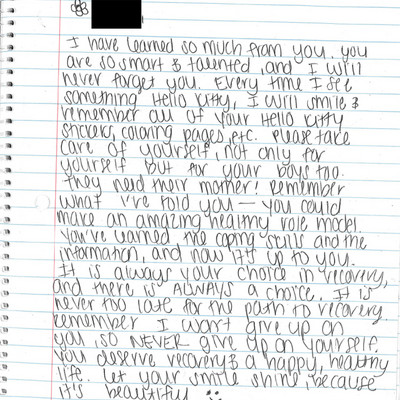 I have learned so much from you. you
are so smart & talented, and I will
never forget you. Every time I see
something Hello Kitty, I will smile &
remember all of your Hello Kitty
stickers, coloring pages, etc. Please take
care of yourself, not only for
yourself but for your boys too.
They need their mother! Remember
what I've told you — you could
make an amazing healthy role model.
You've learned the coping skills and the
information, and now it's up to you.
It is always your choice in recovery,
and there is ALWAYS a choice. It is
never too late for the path to recovery.
Remember I won't give up on
you, so NEVER give up on yourself.
You deserve recovery & a happy, healthy
life. Let your smile shine, because
it's beautiful